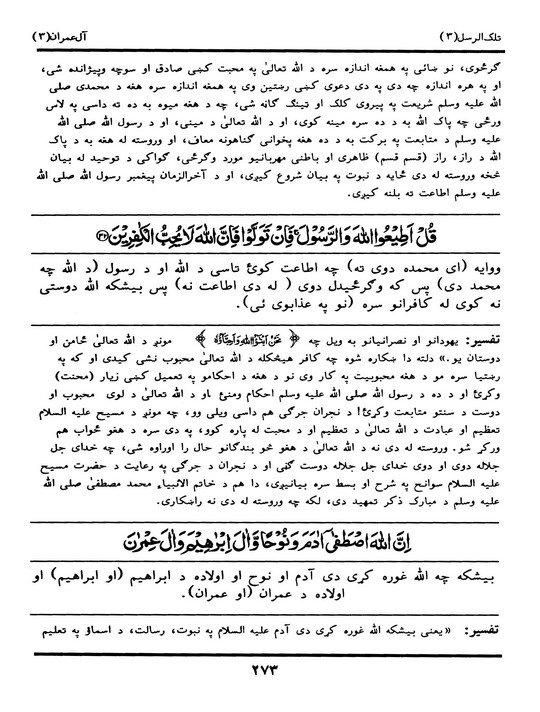 تلك الرسل(٣)
آل عمران(٣)
گرځوی، نو ښائی په همغه اندازه سره د الله تعالیٰ په محبت کښی صادق او سوچه وپیژانده شی،
او په هره اندازه چه دی په دی دعوی کښی رښتین وی په همغه اندازه سره هغه د محمدی صلی
الله علیه وسلم شریعت په پیروی کلک او ټینگ گاڼه شی، چه د هغه میوه به ده ته داسی په لاس
ورځی چه پاک الله به د ده سره مینه کوی، او د الله تعالیٰ د مینی، او د رسول الله صلی الله
علیه وسلم د متابعت په برکت به د ده هغه پخوانی گناهونه معاف، او وروسته له هغه به د پاک
الله د راز، راز (قسم قسم) ظاهری او باطنی مهربانیو مورد وگرځی، گواکی د توحید له بیان
څخه وروسته له دی ځایه د نبوت په بیان شروع کیږی، او د آخرالزمان پیغمبر رسول الله صلی الله
علیه وسلم اطاعت ته بلنه کیږی.
قُلْ اَطِيْعُوا اللّٰهَ وَالرَّسُوْلَ ۚ فَاِنْ تَوَلَّوْا فَاِنَّ اللّٰهَ لَا يُحِبُّ الْكٰفِرِيْنَ ﴿۳۲﴾
ووایه (ای محمده دوی ته) چه اطاعت کوئ تاسی د الله او د رسول (د الله چه
محمد دی) پس که وگرځیدل دوی ( له دی اطاعت نه) پس بیشکه الله دوستی
نه کوی له کافرانو سره (نو په عذابوی ئی).
تفسیر: یهودانو او نصرانیانو به ویل چه ﴿ نَحْنُ اَبْنٰٓؤُا اللّٰهِ وَاَحِبَّآؤُهٗ ﴾ مونږ د الله تعالیٰ ځامن او
دوستان یو.» دلته دا ښکاره شوه چه کافر هیڅکله د الله تعالیٰ محبوب نشی کیدی او که په
رښتیا سره مو د هغه محبوبیت په کار وی نو د هغه د احکامو په تعمیل کښی زیار (محنت)
وکړئ او د ده د رسول الله صلی الله علیه وسلم احکام ومنئ او د الله تعالیٰ د لوی محبوب او
دوست د سنتو متابعت وکړئ! د نجران جرگی هم داسی ویلی وو، چه مونږ د مسیح علیه السلام
تعظیم او عبادت د الله تعالیٰ د تعظیم او د محبت له پاره کوو، په دی سره د هغو ځواب هم
ورکړ شو. وروسته له دی نه د الله تعالیٰ د هغو څو بندگانو حال را اوراوه شی، چه خدای جل
جلاله دوی او دوی خدای جل جلاله دوست گڼی او د نجران د جرگی په رعایت د حضرت مسیح
علیه السلام سوانح په شرح او بسط سره بیانیږی، دا هم د خاتم الانبیاء محمد مصطفیٰ صلی الله
علیه وسلم د مبارک ذکر تمهید دی، لکه چه وروسته له دی نه راښکاری.
اِنَّ اللّٰهَ اصْطَفٰٓى اٰدَمَ وَنُوْحًا وَّاٰلَ اِبْرٰهِيْمَ وَاٰلَ عِمْرٰنَ
بیشکه چه الله غوره کړی دی آدم او نوح او اولاده د ابراهیم (او ابراهیم) او
اولاده د عمران (او عمران).
تفسیر: «یعنی بیشکه الله غوره کړی دی آدم علیه السلام په نبوت، رسالت، د اسماؤ په تعلیم
٢٧٣